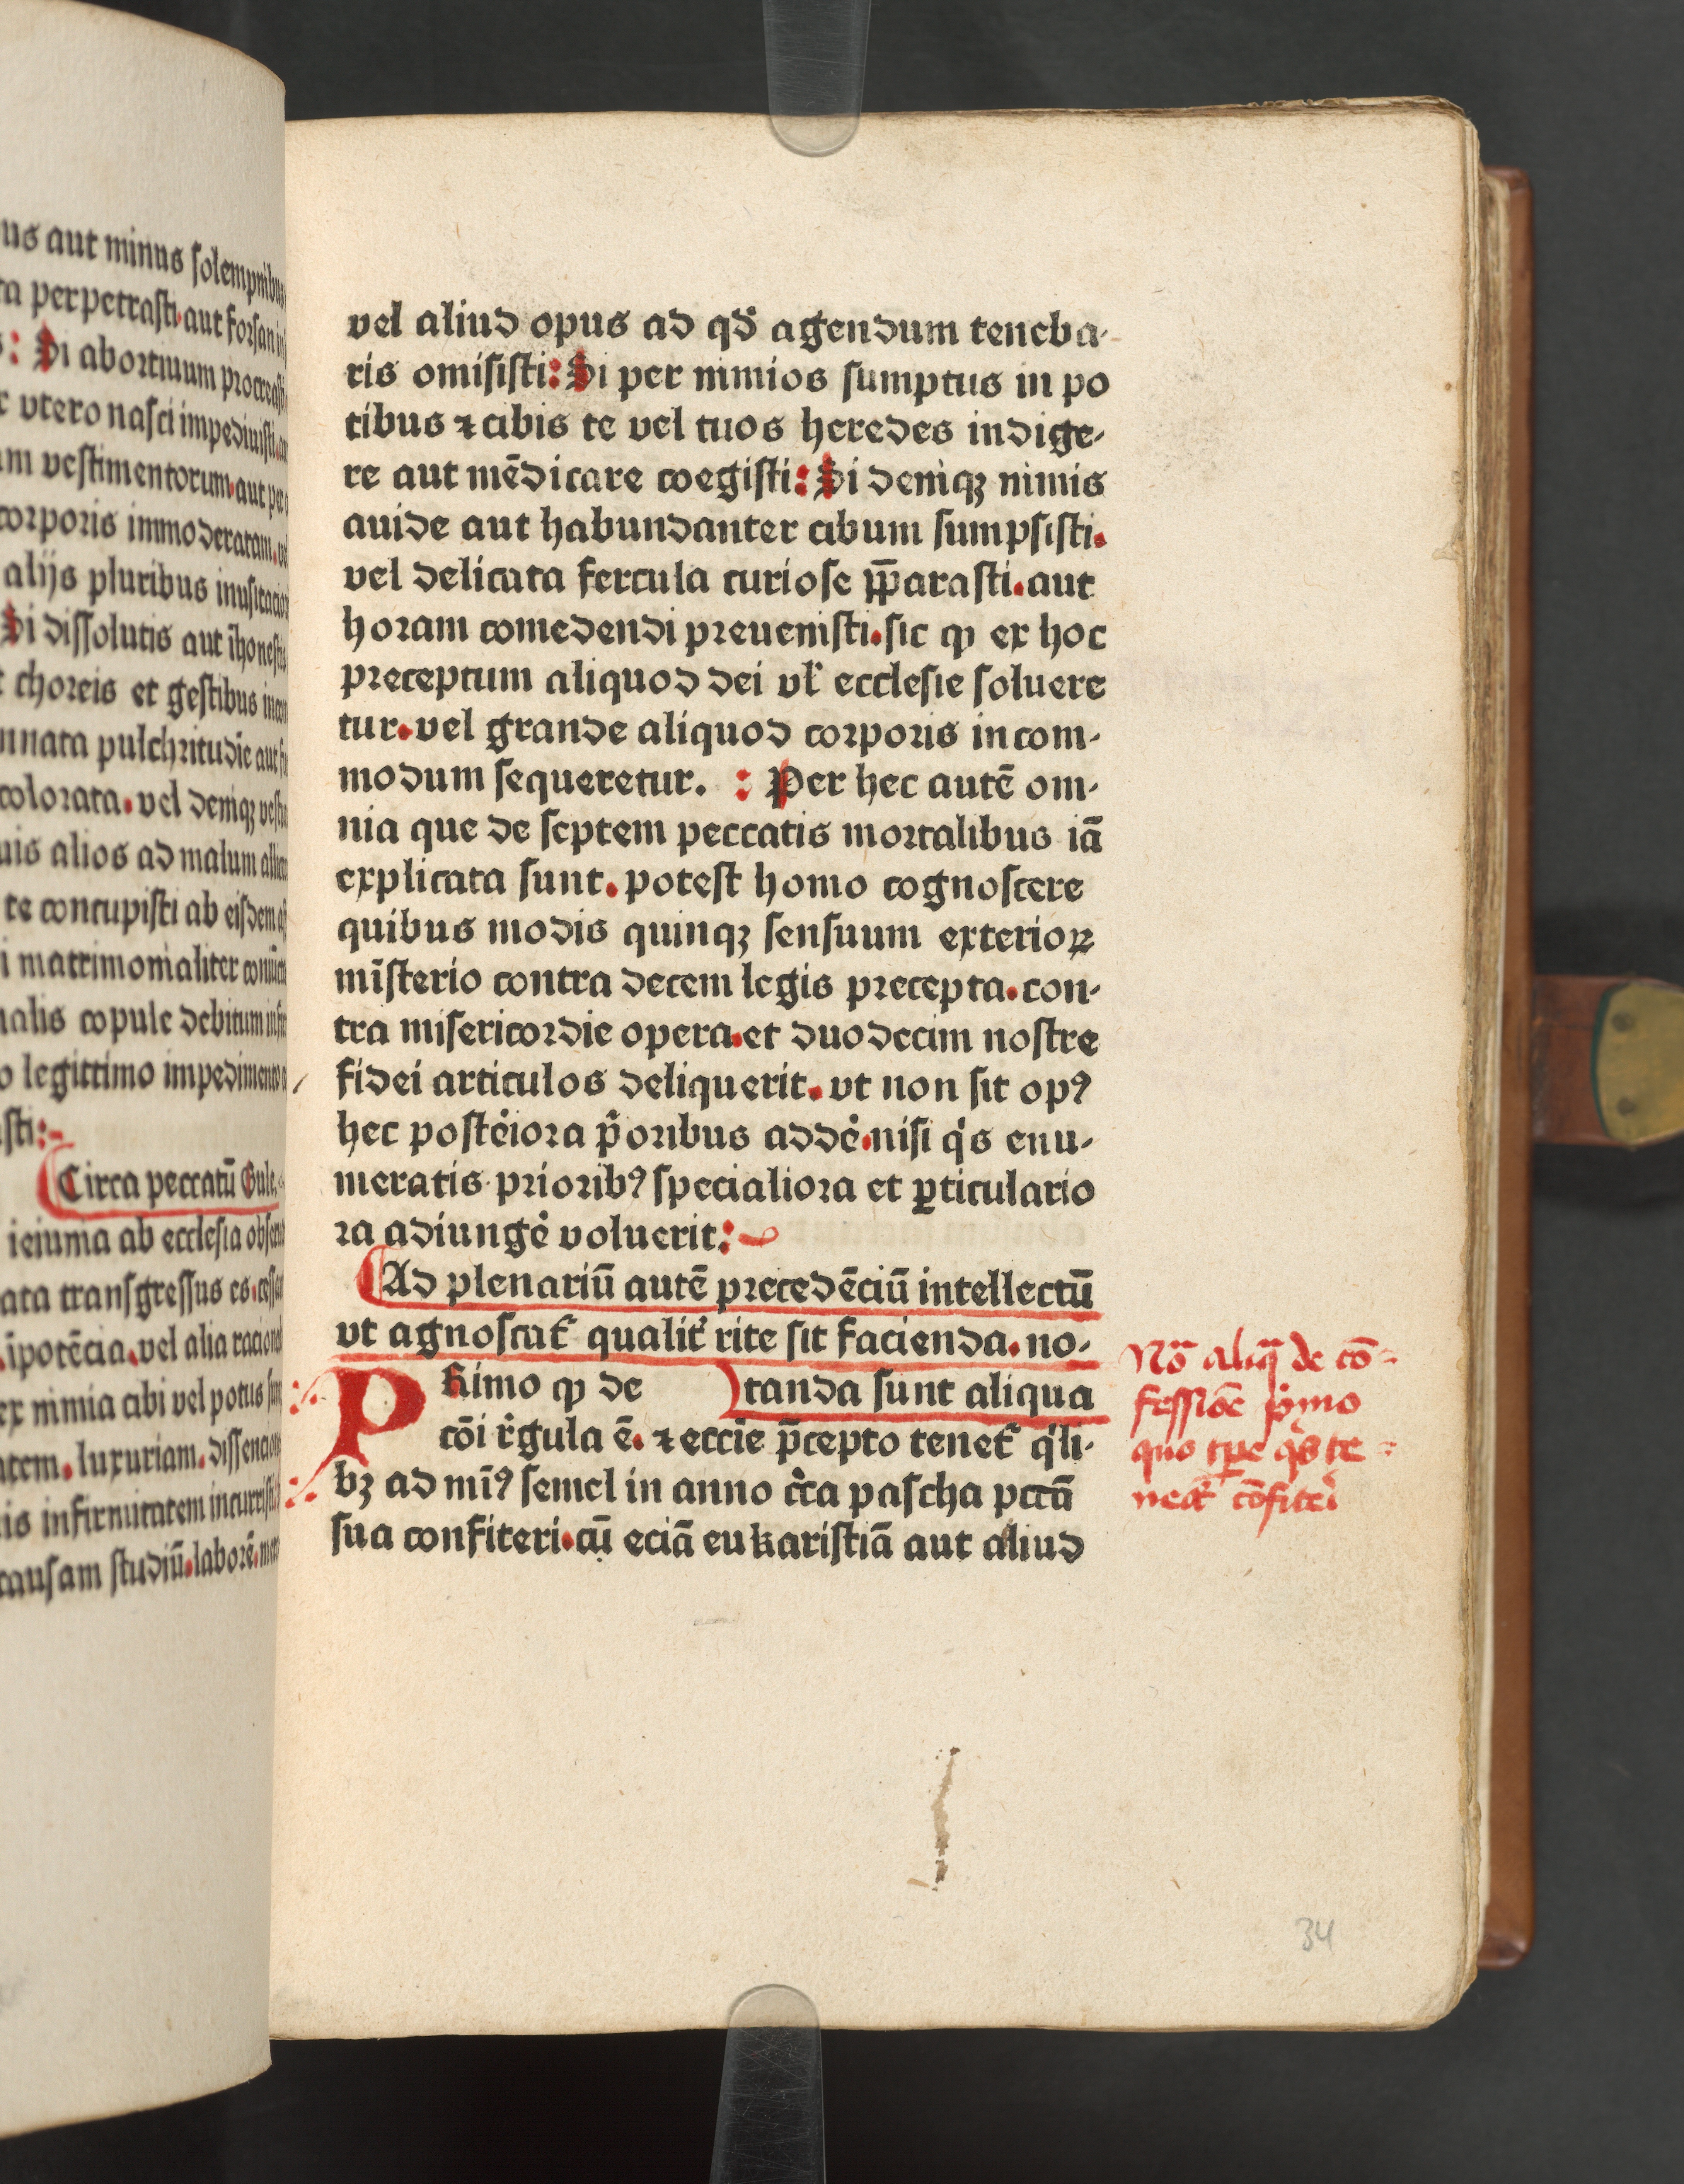 us aut minus solempnibus
ta perpetrasti. aut forsan in
: Si abortiuum procreasti
vtero nasci impediuisti.
m vestimentorum. aut per
corporis immoderatam.
alijs pluribus inusitacio
Si dissolutis aut īhonestis
choreis et gestibus
nnata pulchritudīe aut
colorata. vel deniqꝫ
uis alios ad malum
te concupisti ab eisdem
i matrimonialiter
nalis copule debitum
o legittimo impedimento
sti:
Circa peccatū Gule.
ieiunia ab ecclesia
ata transgressus es.
īpotēcia. vel alia
ex nimia cibi vel potus
atem. luxuriam.
is infirmitatem incurristi
causam studiū. laborē.
vel aliud opus ad qđ agendum teneba-
ris omisisti: Si per nimios sumptus in po
tibus ⁊ cibis te vel tuos heredes indige-
re aut mēdicare coegisti: Si deniqꝫ nimis
auide aut habundanter cibum sumpsisti.
vel delicata fercula curiose p̄parasti. aut
horam comedendi preuenisti. sic ꝙ ex hoc
preceptum aliquod dei vl̓ ecclesie soluere
tur. vel grande aliquod corporis incom-
modum sequeretur. : Per hec autē om-
nia que de septem peccatis mortalibus iā
explicata sunt. potest homo cognoscere
quibus modis quinqꝫ sensuum exterioꝝ
mīsterio contra decem legis precepta. con-
tra misericordie opera. et duodecim nostre
fidei articulos deliquerit. vt non sit opꝰ
hec postėiora p̊oribus addė. nisi q̇s enu-
meratis prioribꝰ specialiora et ꝑticulario
ra adiungė voluerit:
Ad plenariū autē precedēciū intellectū
vt agnoscat̓ qualit̓ rite sit facienda. no-
PRimo ꝙ de tanda sunt aliqua
cōi r̓gula ē. ⁊ eccīe p̄cepto tenet̓ q̇li-
bꝫ ad mīꝰ semel in anno c̊ca pascha pctā
sua confiteri. cū eciā eukaristiā aut aliud
Nō aliq̄ de cō-
fessiōe p̊mo
quo tp̄e q̇s te-
neat̓ cōfiteri
34